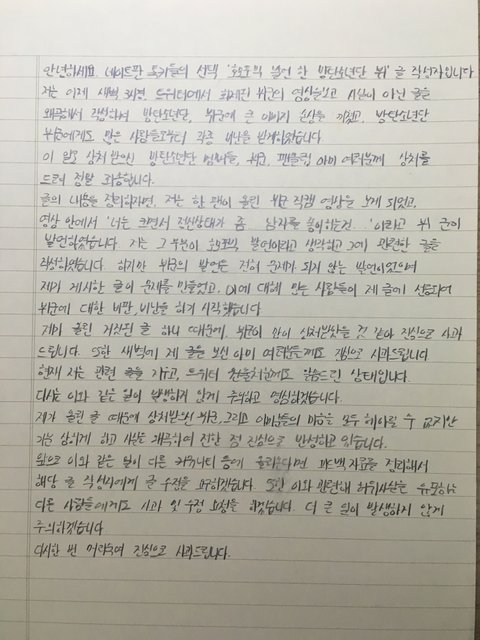 안녕하세요. 네이트판 톡커들의 선택 '호모포빅 발언 한 방탄소년단 뷔' 글 작성자입니다
저는 어제 새벽 트위터에서 화제된 뷔군의 영상을보고 사실이 아닌 글을
왜곡해서 작성하여 방탄소년단, 뷔군에 큰 이미지 손상을 끼쳤고, 방탄소년단
뷔군에게도 많은 사람들로부터 각종 비난을 받게하였습니다.
이 일로 상처 받으신 방탄소년단 멤버들, 뷔군, 팬클럽 아미 여러분께 상처를
드려 정말 죄송합니다.
글의 내용을 정리하자면, 저는 한 팬이 올린 뷔군 직캠 영상을 보게 되었고,
영상 안에서 '너는 크면서 정신상태가 좀 남자를 좋아하는건..'이라고 뷔 군이
발언하였습니다. 저는 그 부분이 호모포빅 발언이라고 생각하고 그에 관련한 글을
작성하였습니다. 하지만 뷔군의 발언은 전혀 문제가 되지 않는 발언이었으며
제가 게시한 글이 문제를 만들었고, 이에 대해 많은 사람들이 제 글에 선동되어
뷔군에 대한 비판, 비난을 하기 시작했습니다
제가 올린 거짓된 글 하나 때문에, 뷔군이 많이 상처받았을 것 같아 진심으로 사과
드립니다. 또한 새벽에 제 글을 보신 아미 여러분들께도 진심으로 사과드립니다
현재 저는 관련 글을 지우고, 트위터 계정들께도 말씀드린 상태입니다.
다시는 이와 같은 일이 발생하지 않게 주의하고 명심하겠습니다.
제가 올린 글 때문에 상처받으신 뷔군, 그리고 아미분들의 마음을 모두 헤아릴 수 없지만
가슴 아프게 하고 사실을 왜곡하여 전한 점 진심으로 반성하고 있습니다.
앞으로 이와 같은 일이 다른 커뮤니티 등에 올라온다면 피드백 자료를 정리해서
해당 글 작성자에게 글 수정을 요구하겠습니다. 또한 이와 관련해 허위사실을 유포하는
다른 사람들에게도 사과 및 수정 요청을 하겠습니다. 더 큰 일이 발생하지 않게
주의하겠습니다
다시한 번 머리숙여 진심으로 사과드립니다.